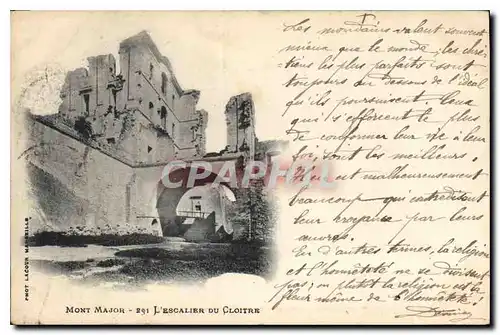 Les mondains valent souvent
mieux que le monde ; les chré-
tiens les plus parfaits sont
toujours au dessous de l'idéal
qu'ils poursuivent. Ceux
qui s'efforcent le plus
de conformer leur vie à leur
foi, sont les meilleurs.
Il est malheureusement
beaucoup qui contredisent
leur croyance par leurs
œuvres.
En d'autres termes, la religion
et l'honnêteté ne se
pas ; ou plutôt la religion est la
fleur même de l'honnêteté.
CARTEPOSTALE
PHOT LACOUR MARSEILLE
MONT MAJOR - 291 L'ESCALIER DU CLOITRE